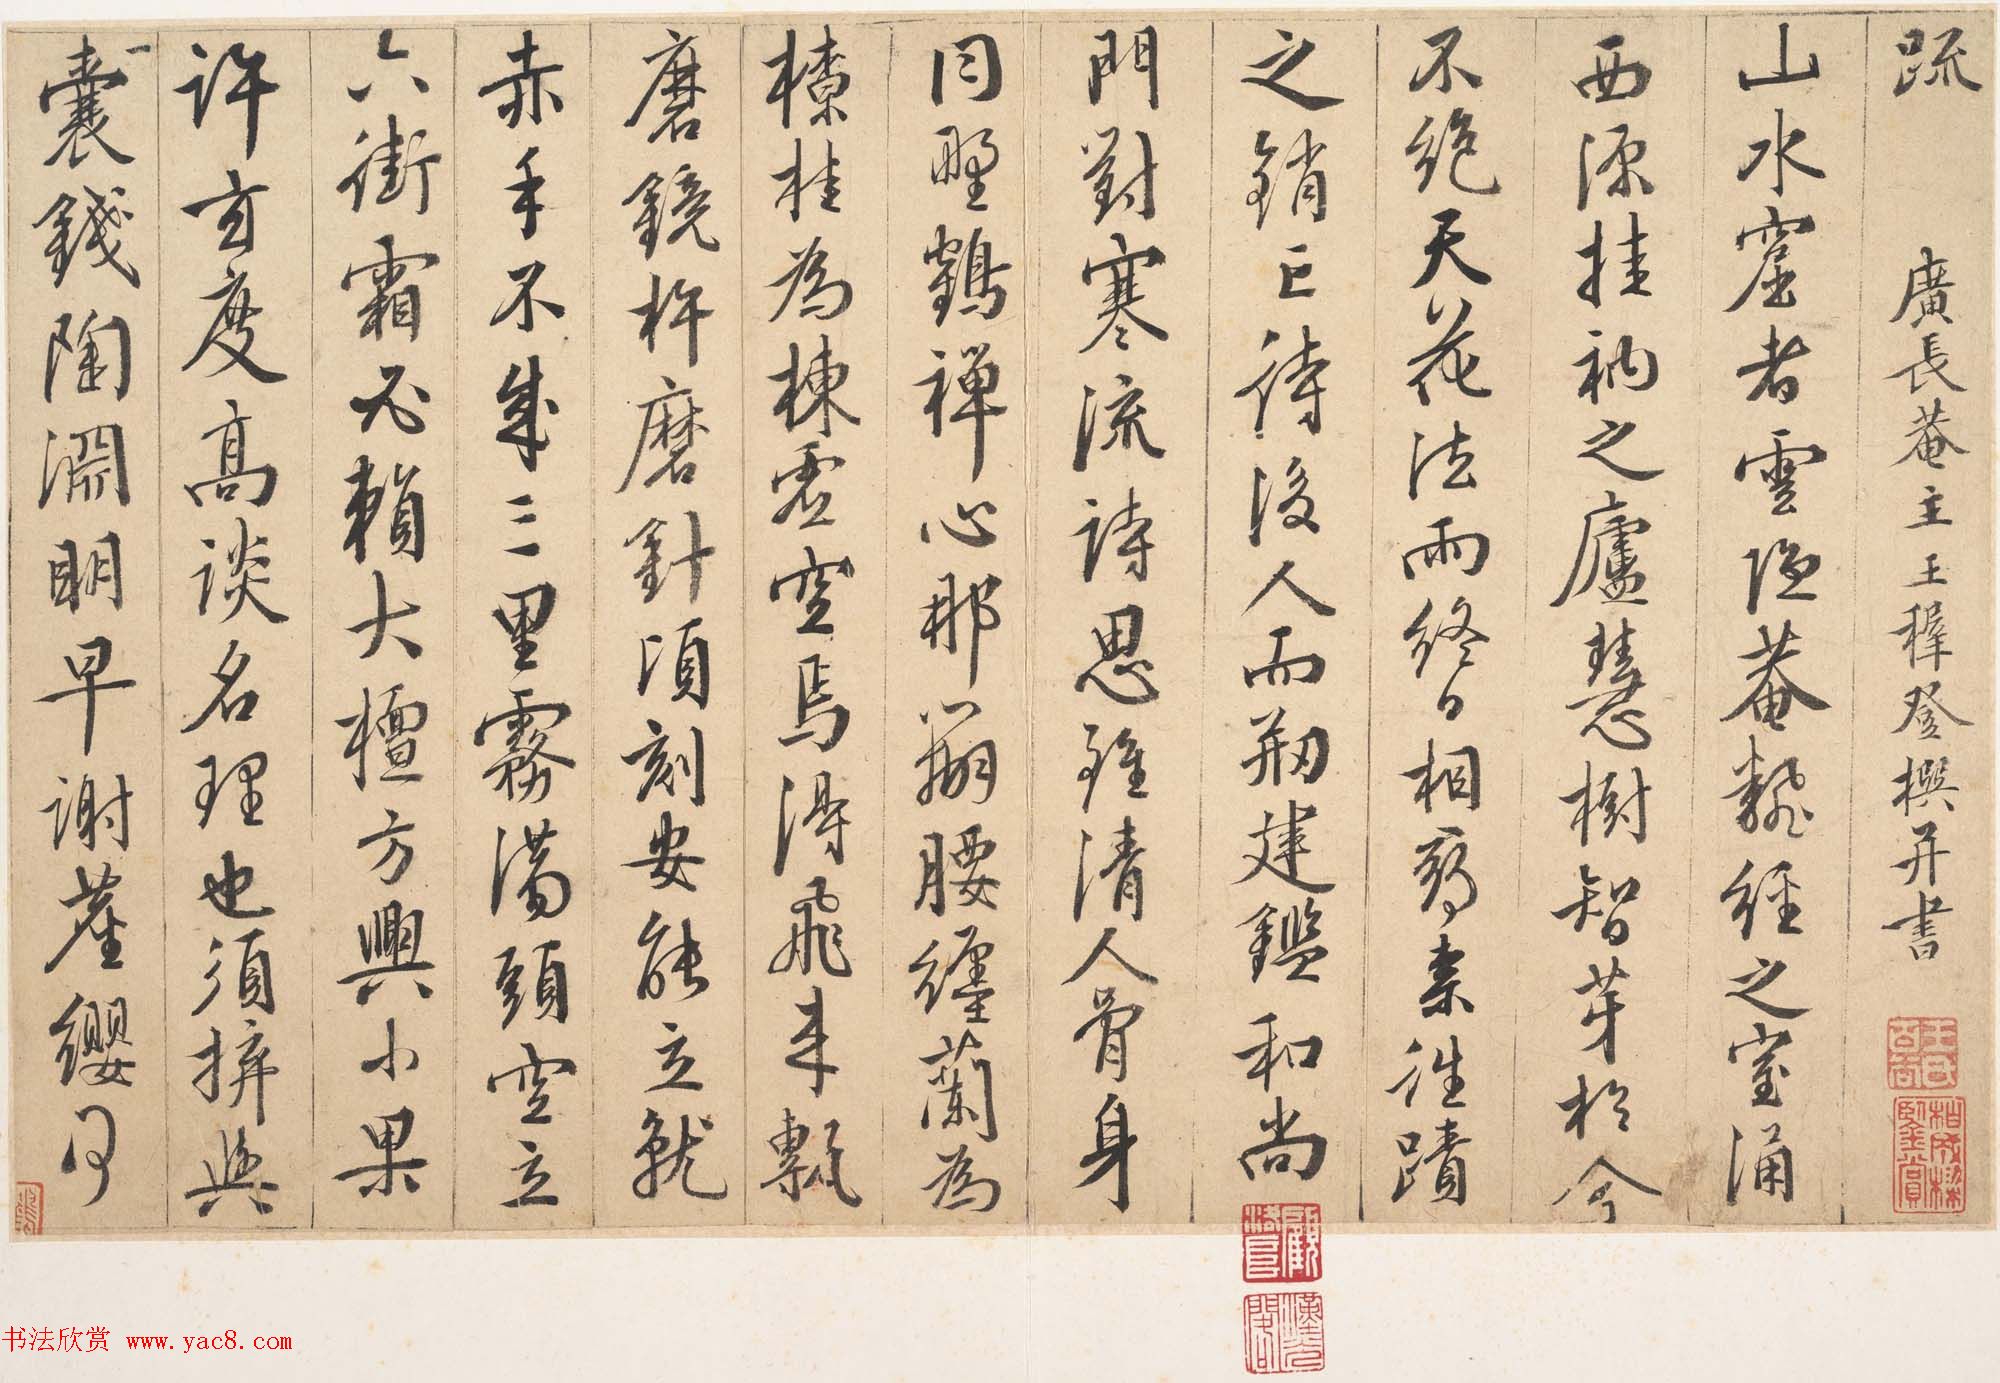 疏
廣長菴主王穉登撰并書
山水窟者雲隱菴翻經之室涌
西源挂衲之廬慧樹智芽於今
不絕天花法雨終日相尋柰往蹟
之銷亡待後人而剏建鑑和尚
門對寒流詩思雖清人骨身
同野鶴禪心那羂腰纏蘭為
橑桂為棟虛空焉得飛來甎
磨鏡杵磨針頃刻安能立就
赤手不成三里霧蕩頭空立
六街霜必賴大檀方興小果
許玄度高談名理也須捹與
一囊錢陶淵明早謝塵纓何
书法欣赏 www.yac8.com